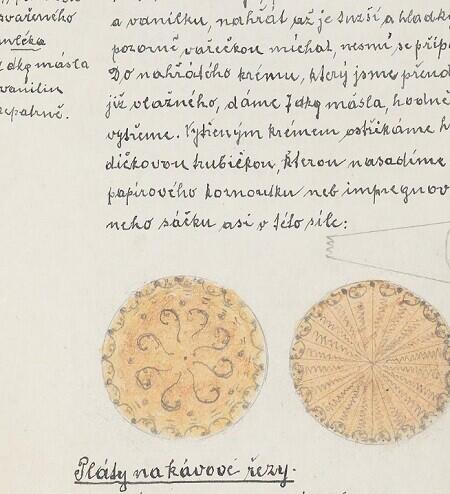 svařeného
mléka
1 dkg másla
vanilin
epatrně.
a vanilku, nahřát až je tužší a hladk
pozorně vařečkou míchat, nesmí se přip
Do nahřátého krému, který jsme před
již vlažného, dáme 7 dkg másla, hodně
vytřeme. Vytřeným krémem ostříkáme h
dičkovou trubičkou, kterou nasadíme
papírového kornoutku neb impregnov
neho sáčku asi v této síle:
Pláty na kávové řezy.